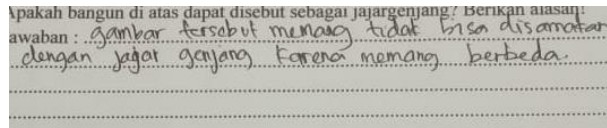 Apakah bangun di atas dapat disebut sebagai jajargenjang? Berikan alasan!
awaban : gambar tersebut memang tidak bisa disamakan
dengan jajar genjang karena memang berbeda.